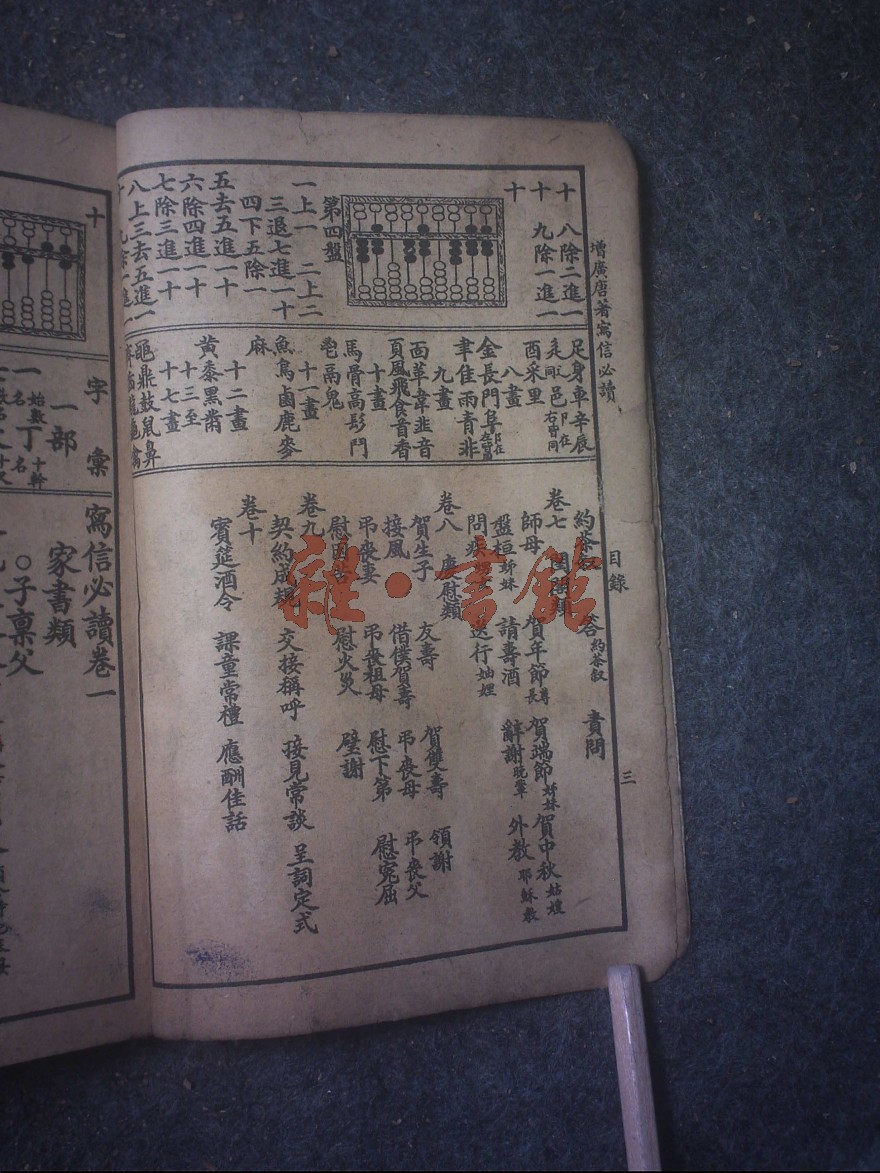 增廣唐著寫信必讀
目錄
三
十 八除二進一
十 九除一進一
十
第四盤
一上一 二上二
三退七進一十
四下五除一
五去五進一十
六除四進一十
七除三進一十
八上三去五進一
足身車辛辰
邑阝在右皆同
酉釆里
八畫
金長門阜阝在左皆同
隶隹雨青非
九畫
面革韋韭音
頁風飛食首香
十畫
馬骨高髟鬥
鬯鬲鬼
十一畫
魚鳥鹵鹿麥
麻
十二畫
黃黍黑黹
十三至
十七畫
黽鼎鼓鼠鼻
約茶叙 答約茶叙 責問
卷七 閨
師母 賀年節尊長 賀端節姊妹 賀中秋姑嫜
盤桓姊妹 請壽酒 辭謝晚輩 外教耶穌教
問疾 送行妯娌
卷八 慶慰類
賀生子 友壽 賀雙壽 領謝
接風 借僕賀壽 弔喪母 弔喪父
弔喪妻 弔喪祖母 慰下第 慰冤屈
慰 慰火災 璧謝
卷九
契約成規 交接稱呼 接見常談 呈詞定式
卷十
賓筵酒令 課童常禮 應酬佳話
十
字彙
一部
一始數名 丁十幹名
寫信必讀卷一
家書類
○子稟父
雜·書館